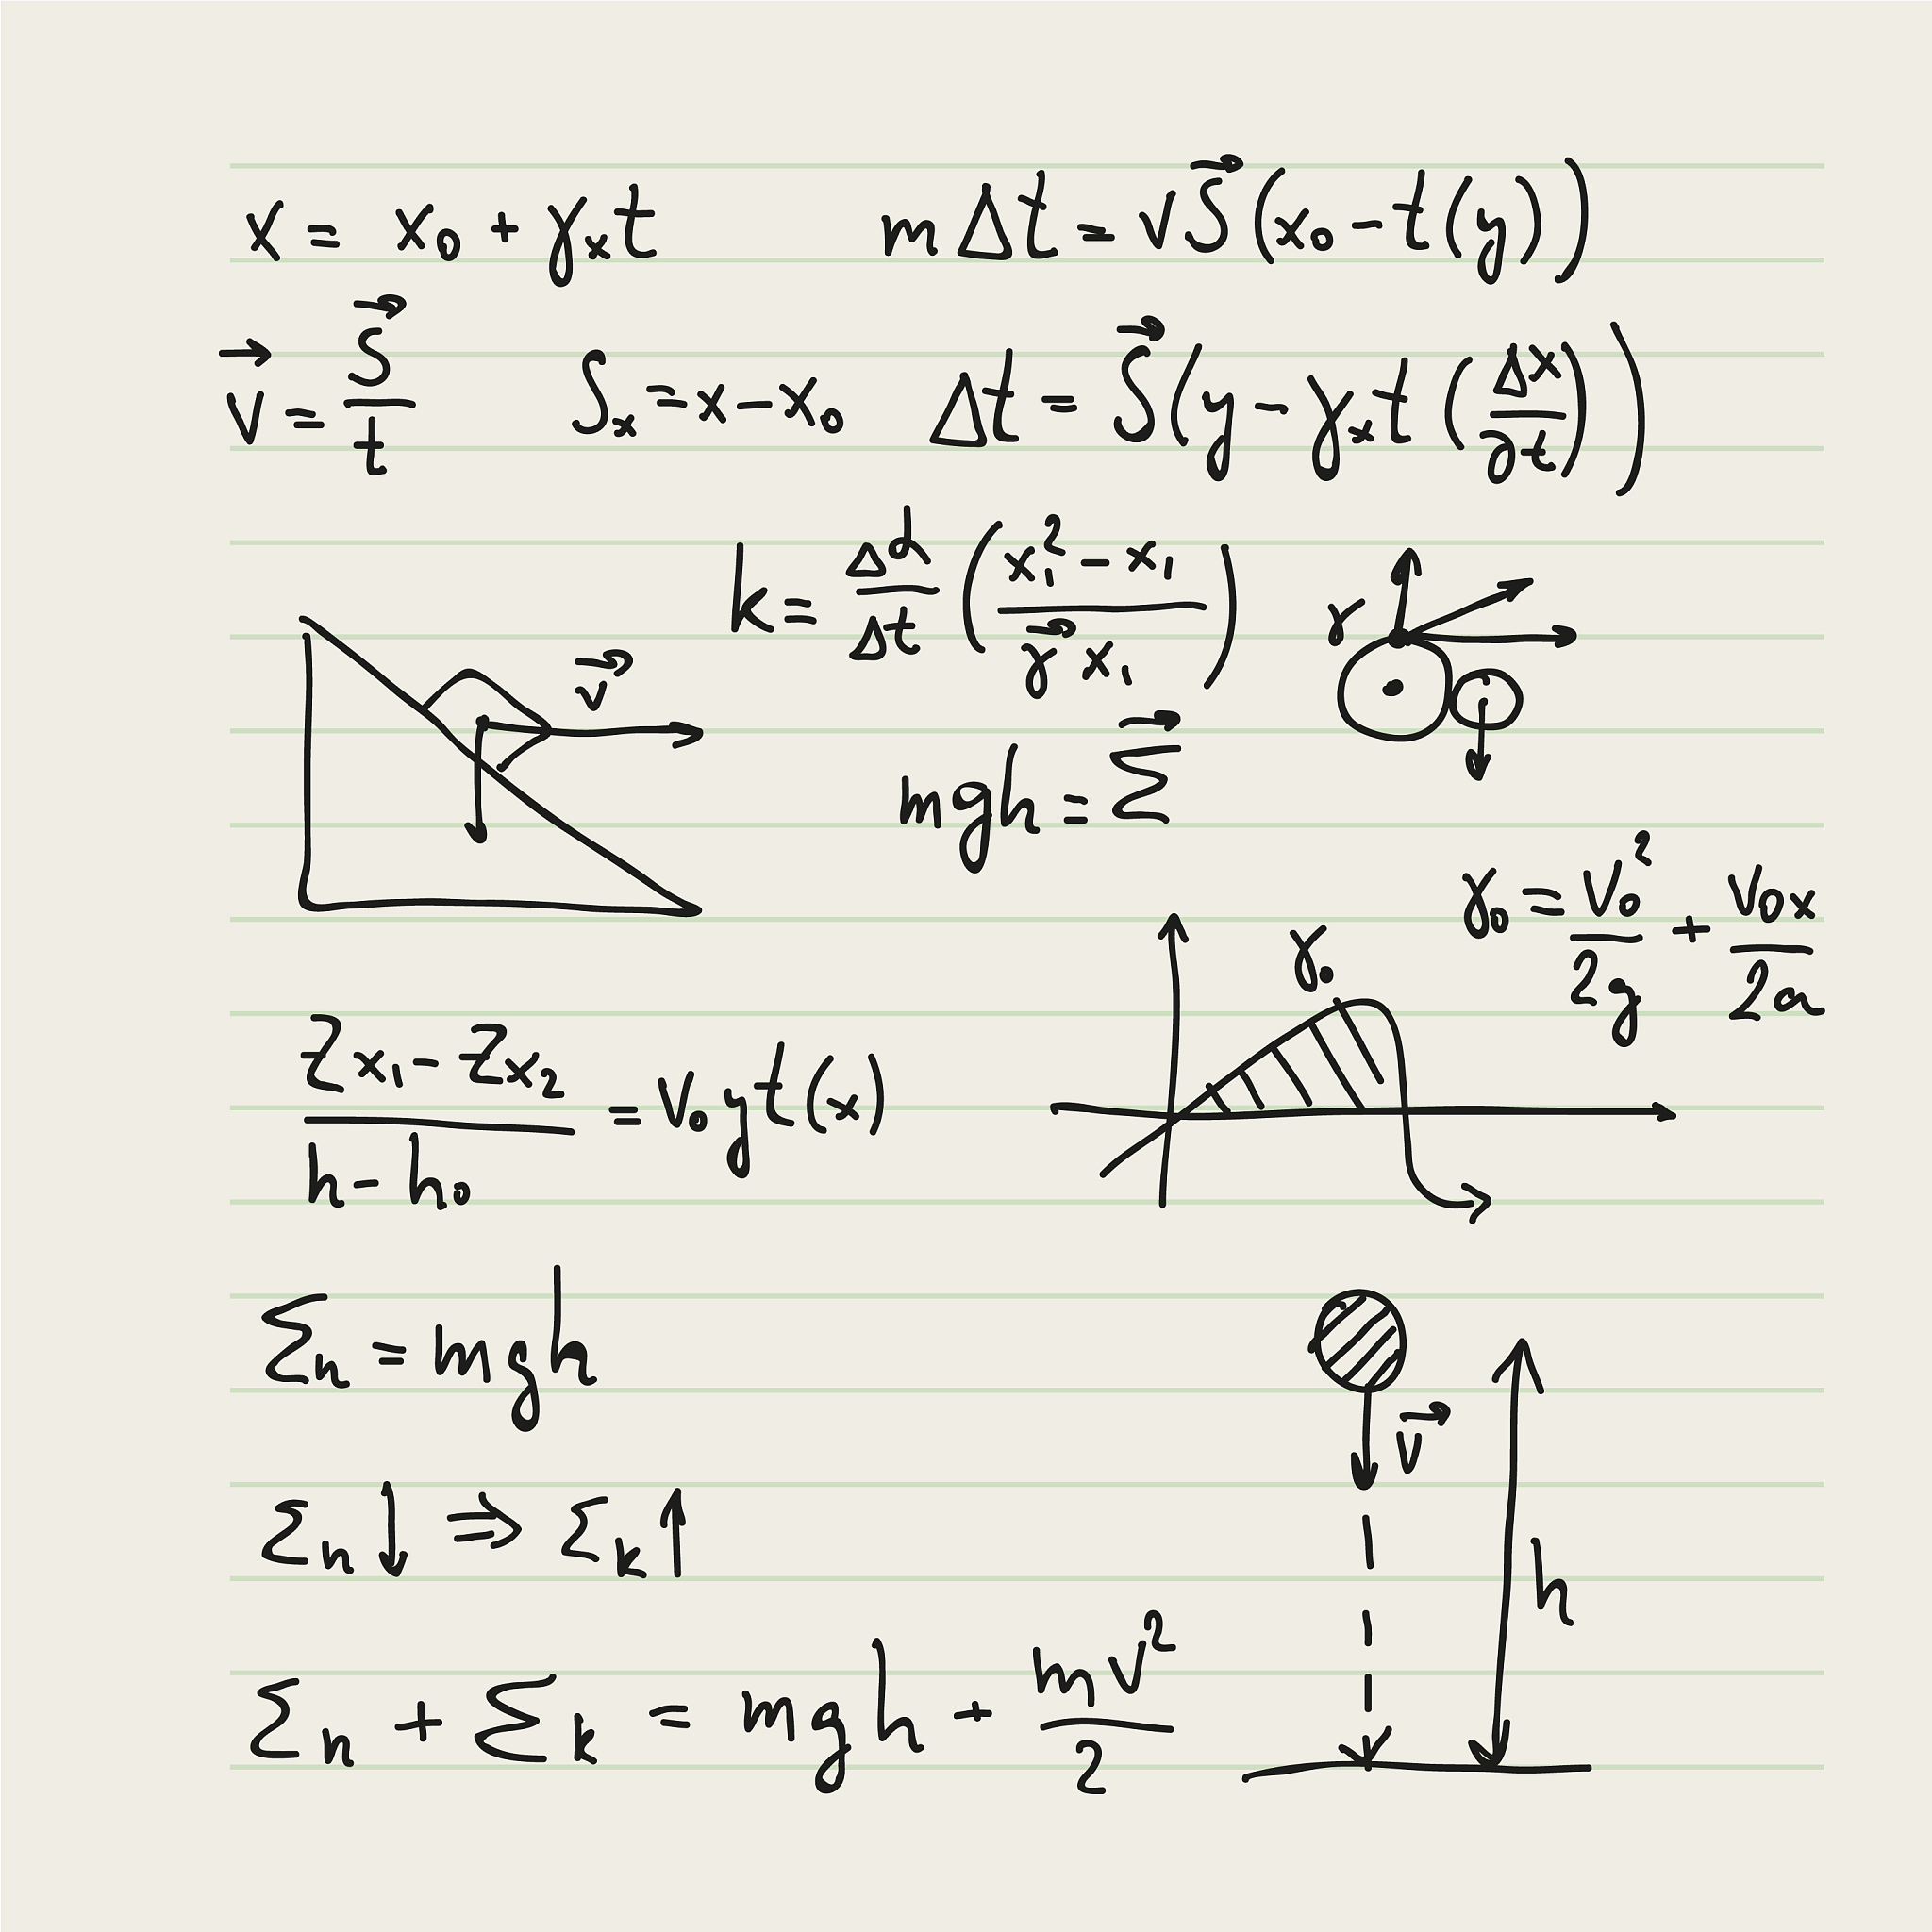 x = x₀ + γₓt
m Δt = √S⃗ (x₀ - t(y))
v⃗ = S⃗/t
Sₓ = x - x₀
Δt = S⃗(y - γₓt (Δx/∂t))
k = Δα/Δt ((x₁² - x₁)/(γ⃗ x₁))
γ
v⃗
mgh = Σ⃗
γ₀ = v₀²/2g + v₀x/2a
γ₀
(Zx₁ - Zx₂)/(h - h₀) = v₀yt(x)
Σₙ = mgh
v⃗
Σₙ↓ ⇒ Σₖ↑
h
Σₙ + Σₖ = mgh + mv²/2